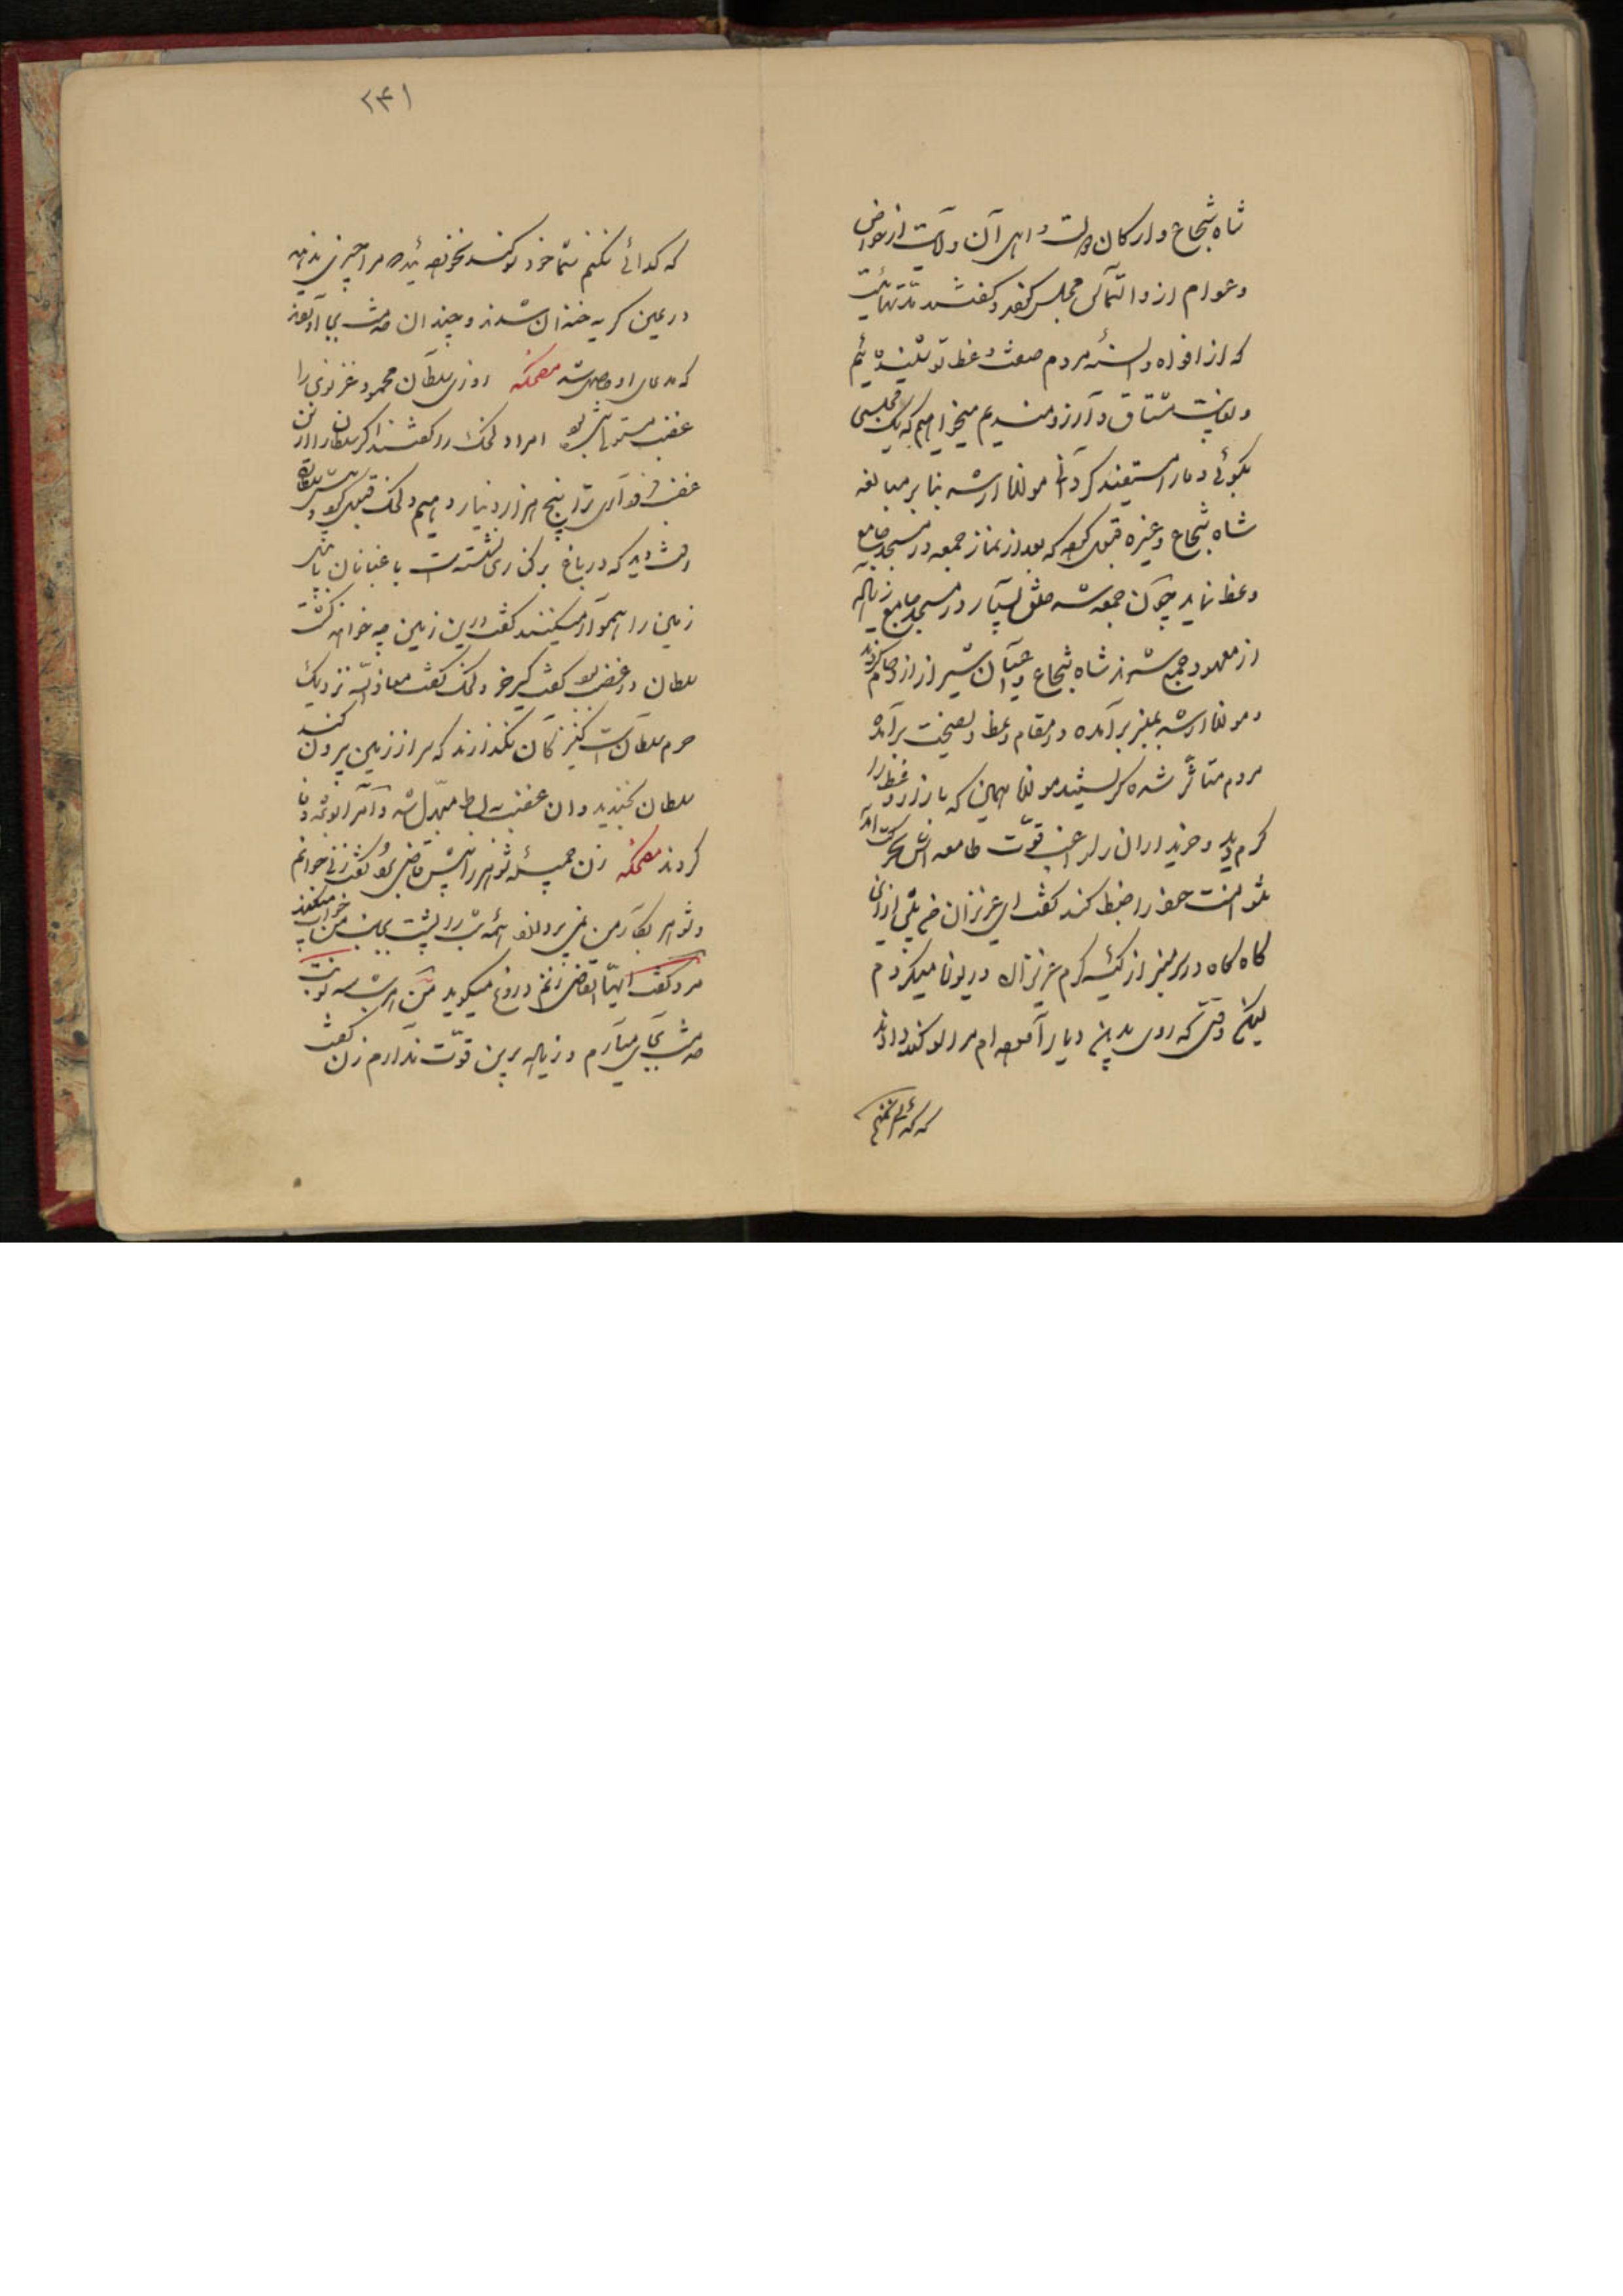 شاه شجاع و ارکان دولت و اهالی آن ولایت از خواص
و عوام ازو التماس مجلس کردند و گفتند مدتهاست
که از افواه و السنهٔ مردم صفت وعظ تو شنیده‌ایم
و بغایت مشتاق و آرزومندیم میخواهیم که یک مجلسی
بگوئی و ما را مستفید گردانی مولانا ارشد بنا بر مبالغه
شاه شجاع و غیره قبول کرد که بعد از نماز جمعه در مسجد جامع
وعظ نماید چون جمعه شد خلق بسیار در مسجد جامع زیاده
از معهود جمع شدند شاه شجاع و اعیان شیراز ازدحام کردند
و مولانا ارشد بمنبر برآمده در مقام وعظ و نصیحت برآمد
مردم متأثر شده گریستند مولانا همین که بازار وعظ را
گرم دید و خریداران را راغب قوت طامعه‌اش بحرکت آمد
نتوانست خود را ضبط کند گفت ای عزیزان من پیش ازین
گاه گاه در سر منبر از کیسه کرم عزیزان دریوزه میکردم
لیکن وقتی که روی بدین دیار آورده‌ام مرا سوگند دادند
که گدائی نکنم
۲۴۱
که گدائی نکنم شما خود سوگند نخورده‌اید که مرا چیزی ندهید
در عین گریه خندان شدند و چندان خدمت بجا آوردند
که مدعای او حاصل شد مضحکه روزی سلطان محمود غزنوی را
غضب مستولی شده بود امرا دلخک را گفتند اگر سلطان را ازین
غضب فرو آری ترا پنج هزار دینار دهیم دلخک قبول کرد و پیش سلطان
رفت دید که در باغ بر کناری نشسته است باغبانان
زمین را هموار میکنند گفت درین زمین چه خواهند کشت
سلطان در غضب بود گفت کیر خر دلخک گفت معاذ الله نزدیک
حرم سلطان است کنیزکان نگذارند که سر از زمین بیرون کند
سلطان بخندید و آن غضب به انبساط مبدل شد و امرا بوعده وفا
کردند مضحکه زن جمیله شوهر را پیش قاضی برد و گفت زنی جوانم
و شوهر بکار من نمی‌پردازد همه شب رو پشت بجانب من خواب میکند
مرد گفت ایها القاضی زنم دروغ میگوید من هر شب سه نوبت
خدمت بجای میآرم و زیاده برین قوت ندارم زن گفت